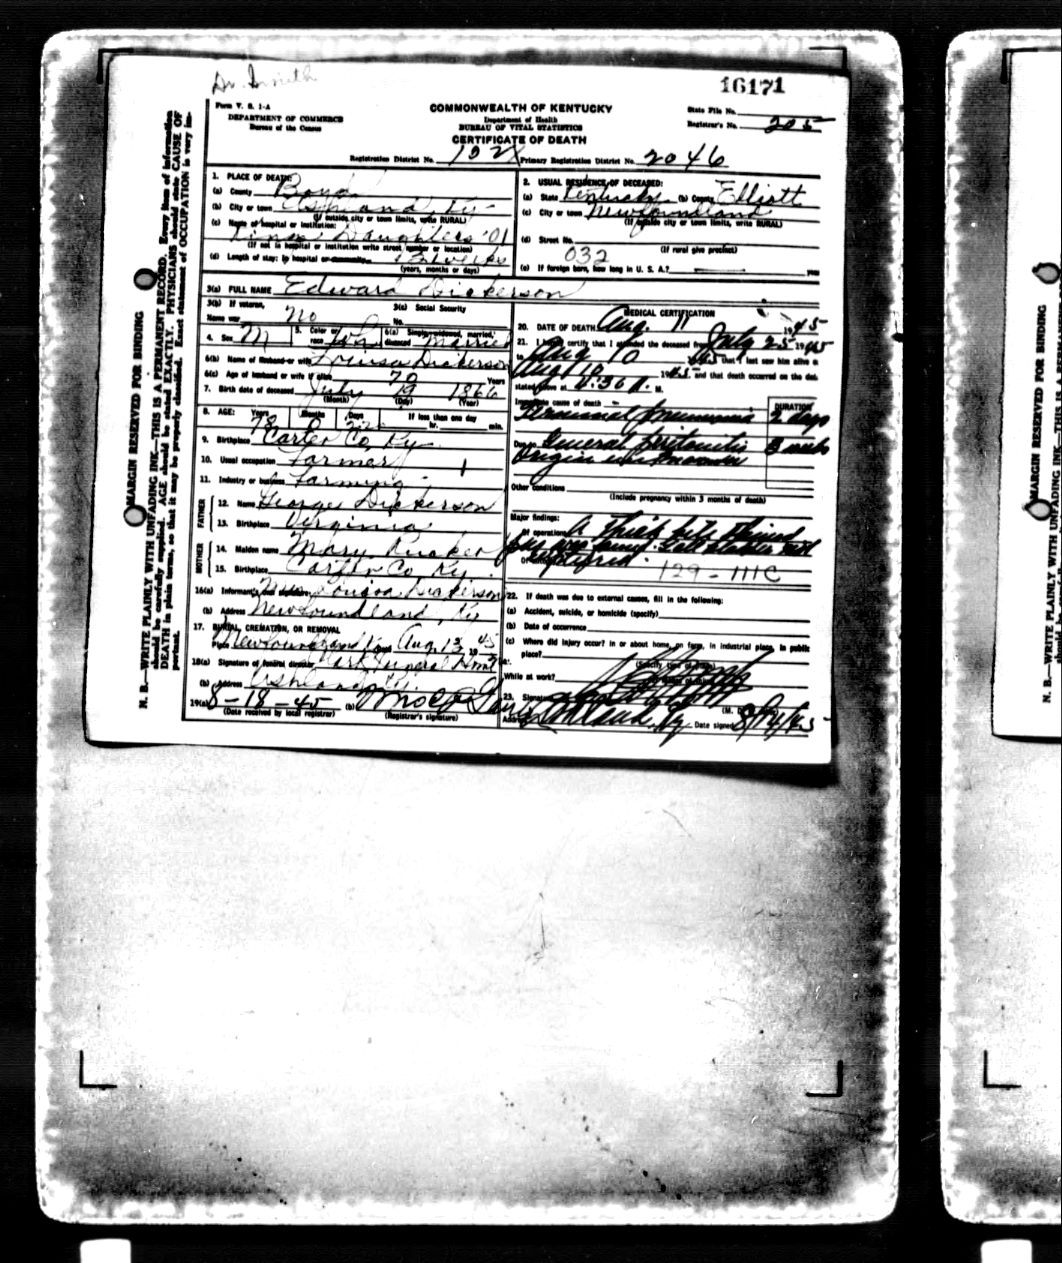 Dr. Smith
16171
Form V. S. 1-A
DEPARTMENT OF COMMERCE
Bureau of the Census
COMMONWEALTH OF KENTUCKY
Department of Health
BUREAU OF VITAL STATISTICS
CERTIFICATE OF DEATH
State File No.
Registrar's No. 205
Registration District No. Primary Registration District No. 2046
1. PLACE OF DEATH:
(a) County Boyd
(b) City or town Ashland Ky
(If outside city or town limits, write RURAL)
(c) Name of hospital or institution:
Kings Daughters
(If not in hospital or institution write street number or location)
(d) Length of stay: In hospital or community
(years, months or days)
2. USUAL RESIDENCE OF DECEASED:
(a) State Kentucky (b) County Elliott
(c) City or town Newfoundland
(If outside city or town limits, write RURAL)
(d) Street No.
(If rural give precinct)
032
(e) If foreign born, how long in U. S. A.? years
3(a) FULL NAME Edward Dickerson
3(b) If veteran,
Name war no
3(c) Social Security
No.
4. Sex M 5. Color or race 6(a) Single, widowed, married, divorced Married
6(b) Name of Husband or wife Louisa Dickerson
6(c) Age of husband or wife if alive 70 Years
7. Birth date of deceased July 19 1866
(Month) (Day) (Year)
8. AGE: Years Months Days If less than one day
78 0 hr. min.
9. Birthplace Carter Co Ky
10. Usual occupation Farmer
11. Industry or business Farming
FATHER
12. Name George Dickerson
13. Birthplace Virginia
MOTHER
14. Maiden name Mary Rucker
15. Birthplace Carter Co Ky.
16(a) Informant's Mrs Louisa Dickerson
(b) Address Newfoundland, Ky
17. BURIAL, CREMATION, OR REMOVAL
Place Newfoundland Ky Date Aug 13 1945
18(a) Signature of funeral director Funeral Home
(b) Address Ashland, Ky.
19(a) 8-18-45 (b)
(Date received by local registrar) (Registrar's signature)
MEDICAL CERTIFICATION
20. DATE OF DEATH Aug. 11 1945
21. I hereby certify that I attended the deceased from July 25 1945
to Aug 10 1945 that I last saw him alive on
Aug 10 1945 and that death occurred on the date
stated above at M.
Immediate cause of death DURATION
Terminal pneumonia 2 days
Due to General peritonitis 3 weeks
Origin unknown
Other conditions
(Include pregnancy within 3 months of death)
Major findings:
Of operations A thick bile stained
pus was found. Gall bladder not
129 - 111C
22. If death was due to external causes, fill in the following:
(a) Accident, suicide, or homicide (specify)
(b) Date of occurrence
(c) Where did injury occur? in or about home, on farm, in industrial place, in public
place?
(Specify type of place)
While at work?
23. Signature
(M. D. or other)
Address Ashland, Ky Date signed
N. B.—WRITE PLAINLY, WITH UNFADING INK—THIS IS A PERMANENT RECORD. Every item of information
should be carefully supplied. AGE should be stated EXACTLY. PHYSICIANS should state CAUSE OF
DEATH in plain terms, so that it may be properly classified. Exact statement of OCCUPATION is very im-
portant.
MARGIN RESERVED FOR BINDING
MARGIN RESERVED FOR BINDING
N. B.—WRITE PLAINLY, WITH UNFADING INK